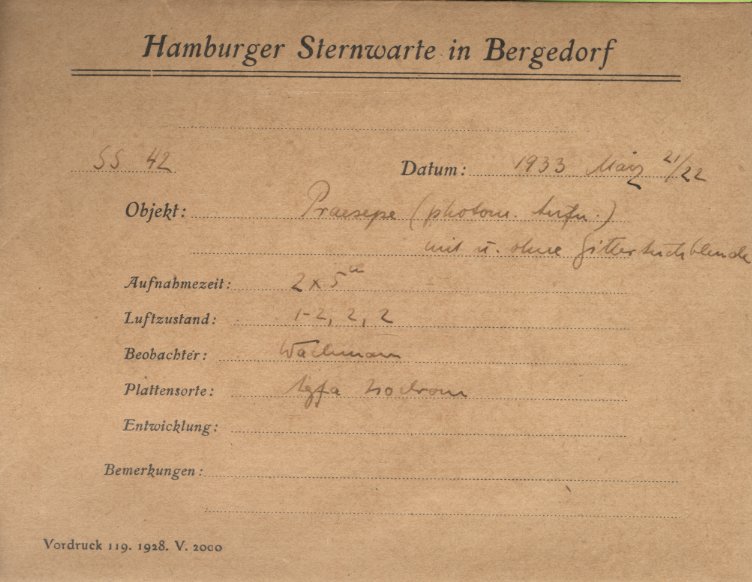 Hamburger Sternwarte in Bergedorf
SS 42 Datum: 1933 März 21/22
Objekt: Praesepe (photom. Aufn.)
mit u. ohne Gittertuchblende
Aufnahmezeit: 2 x 5 m
Luftzustand: 1-2, 2, 2
Beobachter: Wachmann
Plattensorte: Agfa Isochrom
Entwicklung:
Bemerkungen:
Vordruck 119. 1928. V. 2000